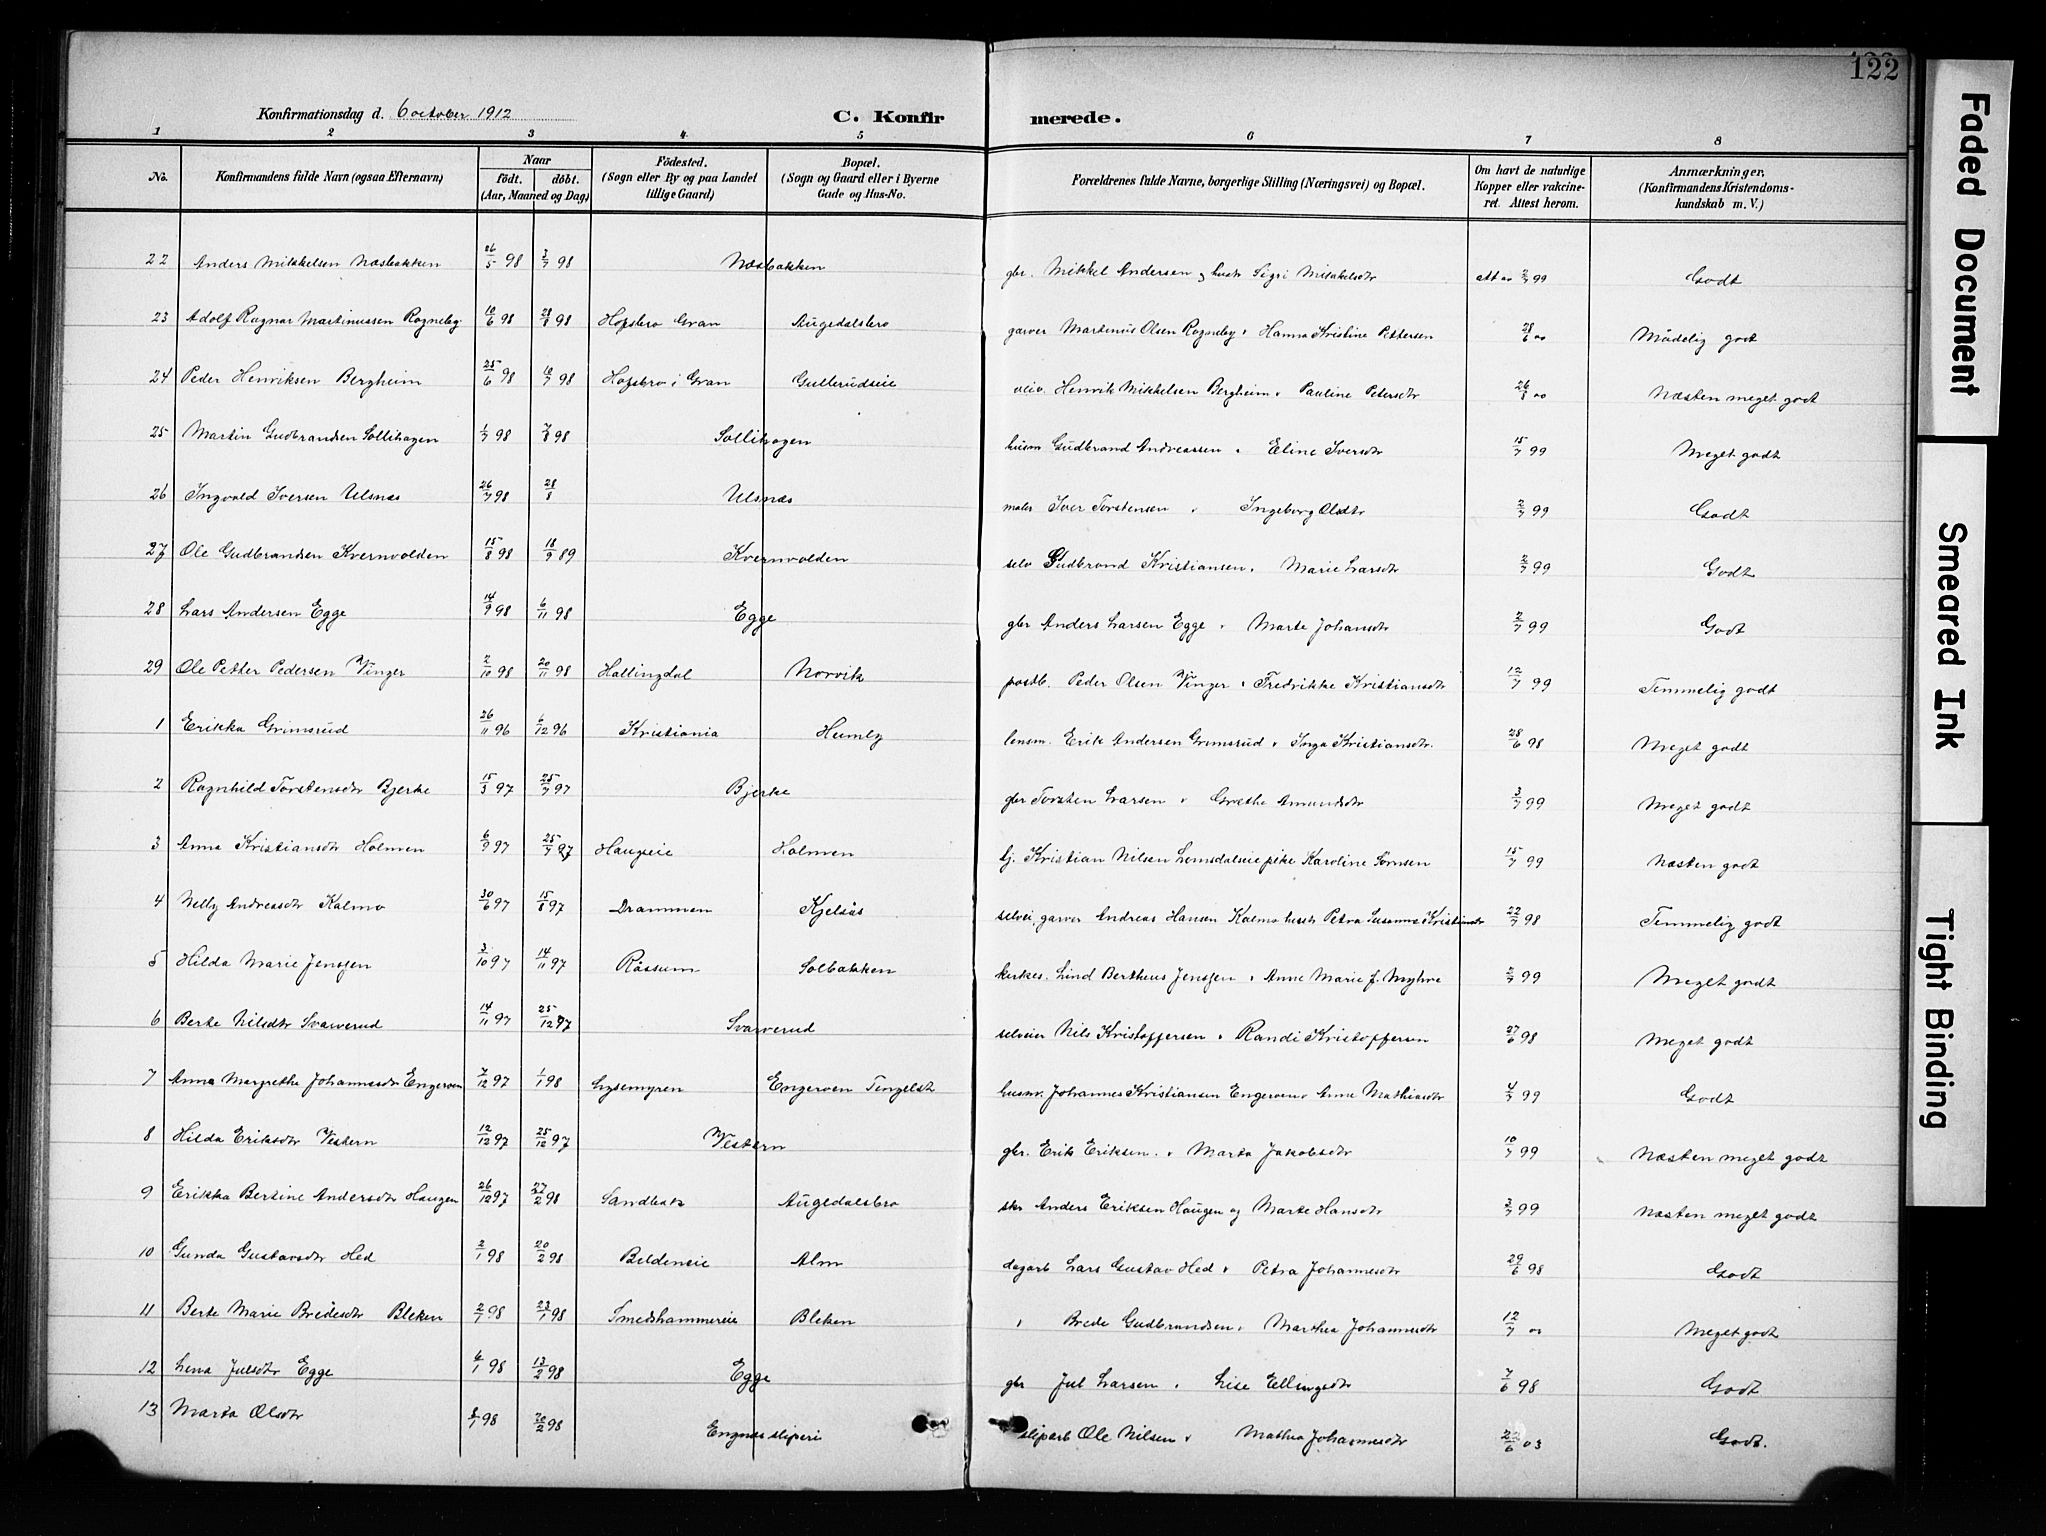 122
Konfirmationsdag d. 6 october 1912
C. Konfirmerede.
1 2 3 4 5 6 7 8
No. Konfirmandens fulde Navn (ogsaa Efternavn) Naar født. døbt. (Aar, Maaned og Dag) Fødested. (Sogn eller By og paa Landet tillige Gaard) Bopæl. (Sogn og Gaard eller i Byerne Gade og Hus-No. Forældrenes fulde Navne, borgerlige Stilling (Næringsvei) og Bopæl. Om havt de naturlige Kopper eller vakcineret. Attest herom. Anmærkninger. (Konfirmandens Kristendomskundskab m. V.)
22 Anders Mikkelsen Næsbakken 26/5 98 3/7 98 Næsbakken gbr. Mikkel Andersen og hustr Sigri Mikkelsdtr att av 2/7 99 Godt
23 Adolf Ragnar Martinussen Rogneby 10/6 98 28/8 98 Hofsbro Gran Augedalsbro garver Martinus Olsen Rogneby " Hanna Kristine Pettersen 28/6 00 Mådelig godt
24 Peder Henriksen Bergheim 25/6 98 10/7 98 Hofsbro i Gran Gullerudseie Henrik Mikkelsen Bergheim " Pauline Petersdtr 26/8 00 Næsten meget godt
25 Martin Gudbrandsen Sollihagen 1/7 98 7/8 98 Sollihagen husm Gudbrand Andreassen " Eline Iversdtr 15/7 99 Meget godt
26 Ingvald Iversen Ulsnæs 26/7 98 28/8 Ulsnæs maler Iver Torstensen " Ingeborg Olsdtr 2/7 99 Godt
27 Ole Gudbrandsen Kvernvolden 15/8 98 18/9 89 Kvernvolden selv Gudbrand Kristiansen " Marie Larsdtr 2/7 99 Godt
28 Lars Andersen Egge 14/9 98 6/11 98 Egge gbr Anders Larsen Egge " Marte Johansdtr 2/7 99 Godt
29 Ole Petter Pedersen Vinger 2/10 98 20/11 98 Hallingdal Norvik postb. Peder Olsen Vinger " Fredrikke Kristiansdtr 12/7 99 Temmelig godt
1 Erikka Grimsrud 26/11 96 6/12 96 Kristiania Humly lensm. Erik Andersen Grimsrud " Inga Kristiansdtr. 28/6 98 Meget godt
2 Ragnhild Torstensdtr Bjerke 15/3 97 25/7 97 Bjerke gbr Torsten Larsen " Grethe Amundsdtr 3/7 99 Meget godt
3 Anna Kristiansdtr Holmen 6/9 97 25/7 97 Haugseie Holmen tj. Kristian Nilsen Lomsdalseie pike Karoline Sørnsen 15/7 99 Næsten godt
4 Nelly Andreasdtr Kalmo 30/6 97 15/8 97 Drammen Kjelsås selvei, garver Andreas Hansen Kalmo hustr Petra Susanna Kristiansdtr 22/7 98 Temmelig godt
5 Hilda Marie Jenssen 3/10 97 14/11 97 Råssum Solbakken kirkes. Lind Bertheus Jenssen " Anne Marie f. Myhre 2/7 99 Meget godt
6 Berte Nilsdtr Svarverud 14/11 97 25/12 97 Svarverud selveier Nils Kristoffersen " Randi Kristoffersen 27/6 98 Meget godt
7 Anna Margrethe Johannesdtr Engerven 7/12 97 1/1 98 Lysemyren Engerven Tingelst husm. Johannes Kristiansen Engerven " Anne Mathiasdtr 4/7 99 Godt
8 Hilda Eriksdtr Vestern 12/12 97 25/12 97 Vestern gbr. Erik Eriksen. " Marta Jakobsdtr 10/7 99 Næsten meget godt
9 Erikka Bertine Andersdtr Haugen 26/12 97 27/2 98 Sandbak Augedalsbro skr Anders Eriksen Haugen og Marte Hansdtr 3/7 99 Næsten meget godt
10 Gunda Gustavsdtr Hed 2/1 98 20/2 98 Bildeneie Alm dagarb Lars Gustav Hed " Petra Johannesdtr 29/6 98 Godt
11 Berte Marie Bredesdtr Bleken 2/7 98 23/1 98 Smedshammereie Bleken " Brede Gudbrandsen " Marthea Johannesdtr 12/7 00 Meget godt
12 Lina Julsdtr Egge 6/1 98 13/2 98 Egge gbr Jul Larsen " Lise Ellingsdtr 7/6 98 Godt
13 Marta Olsdtr 8/1 98 20/2 98 Engnæs sliperi sliparb Ole Nilsen " Mathea Johannesdtr 22/6 03 Godt.
Faded Document
Smeared Ink
Tight Binding